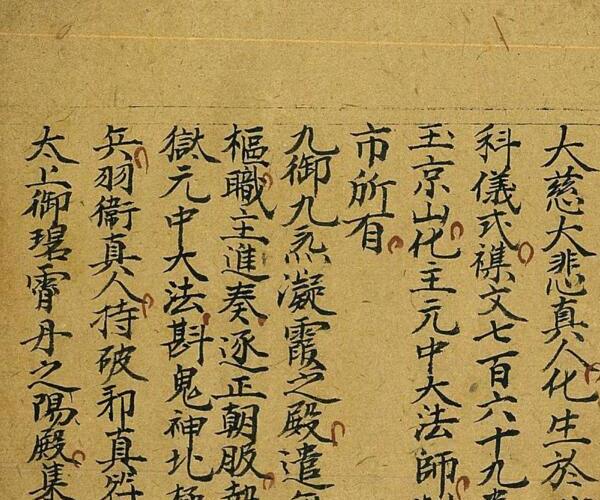 大慈大悲真人化生於
科儀式襍文七百六十九
玉京山化王元中大法師
市所有
九御九炁凝霞之殿遣
樞職主進奏逐正朝服執
獄元中大法斟鬼神北極
兵羽衛真人持破邪真符
太上御碧霄丹之陽殿集